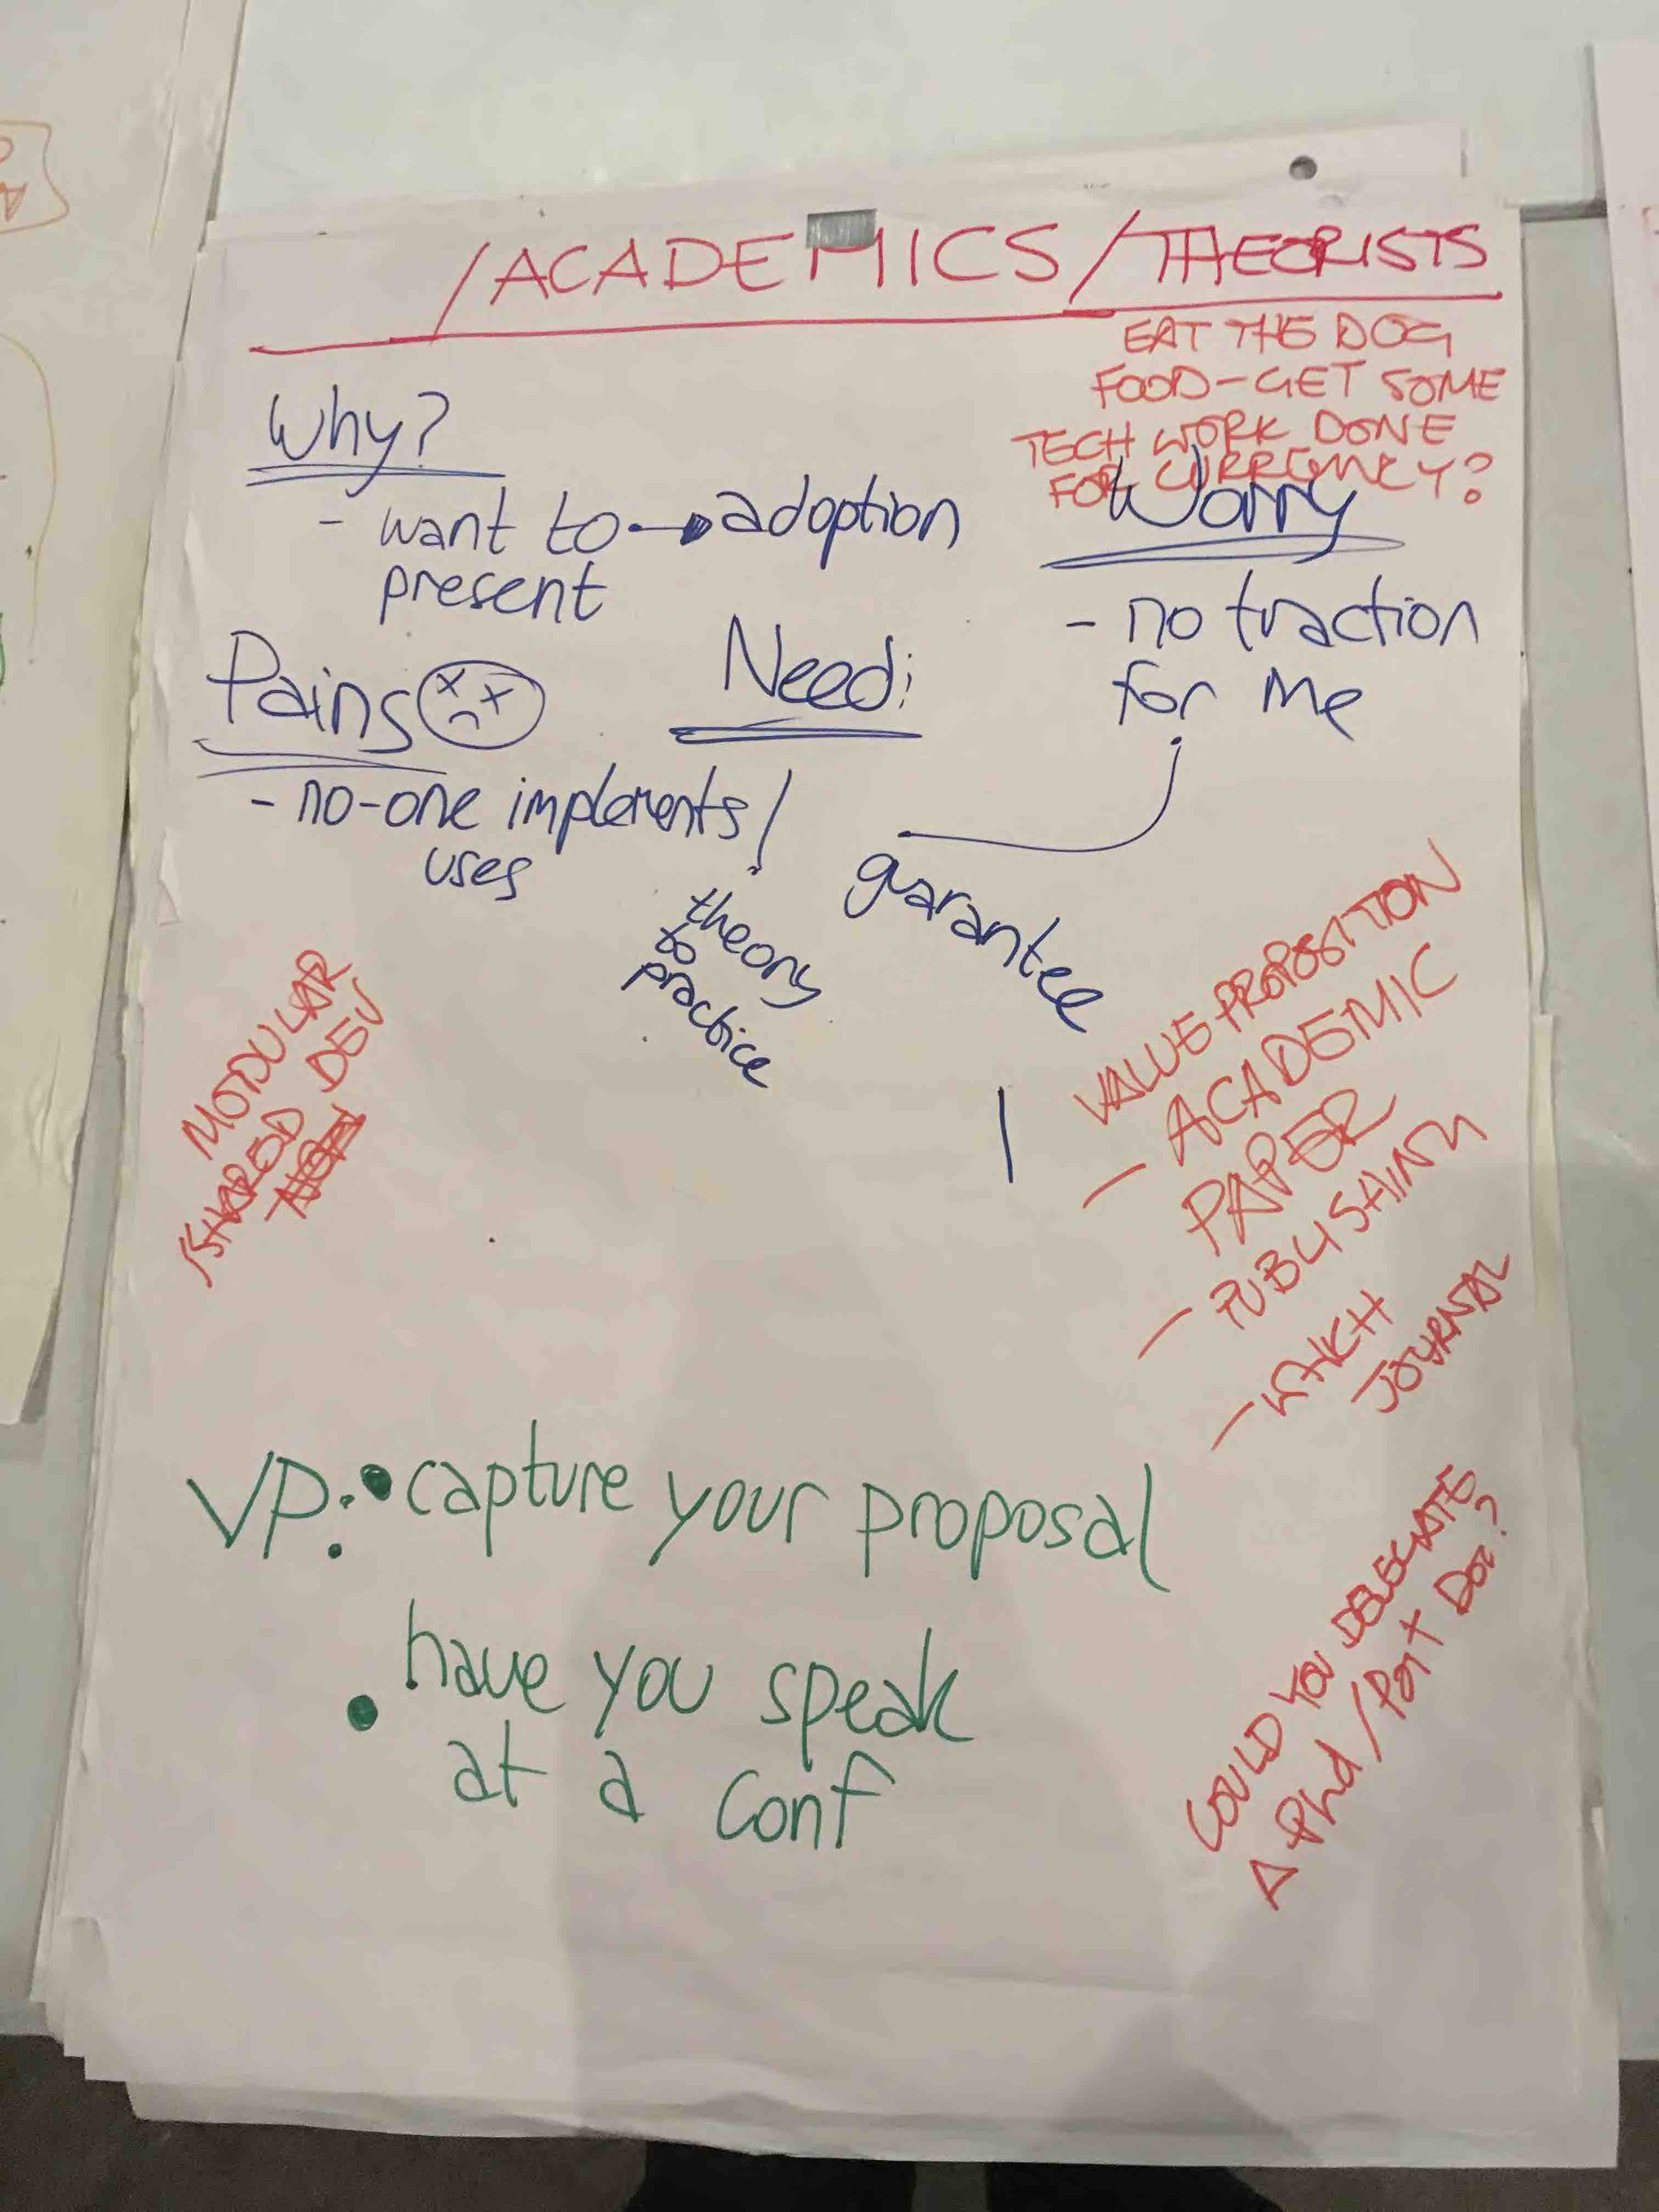 /ACADEMICS/THEORISTS
EAT THE DOG
FOOD-GET SOME
TECH WORK DONE
FOR CURRENCY?
Why?
- want to → adoption
present
Worry
- no traction
for me
Pains
- no-one implements/
uses
Need:
theory
to
practice
guarantee
MODULAR
/SHARED DEV
VALUE PROPOSITION
- ACADEMIC
PAPER
- PUBLISHING
- WHICH
JOURNAL
VP: • capture your proposal
• have you speak
at a conf
COULD YOU DELEGATE
A Phd/Post Doc?